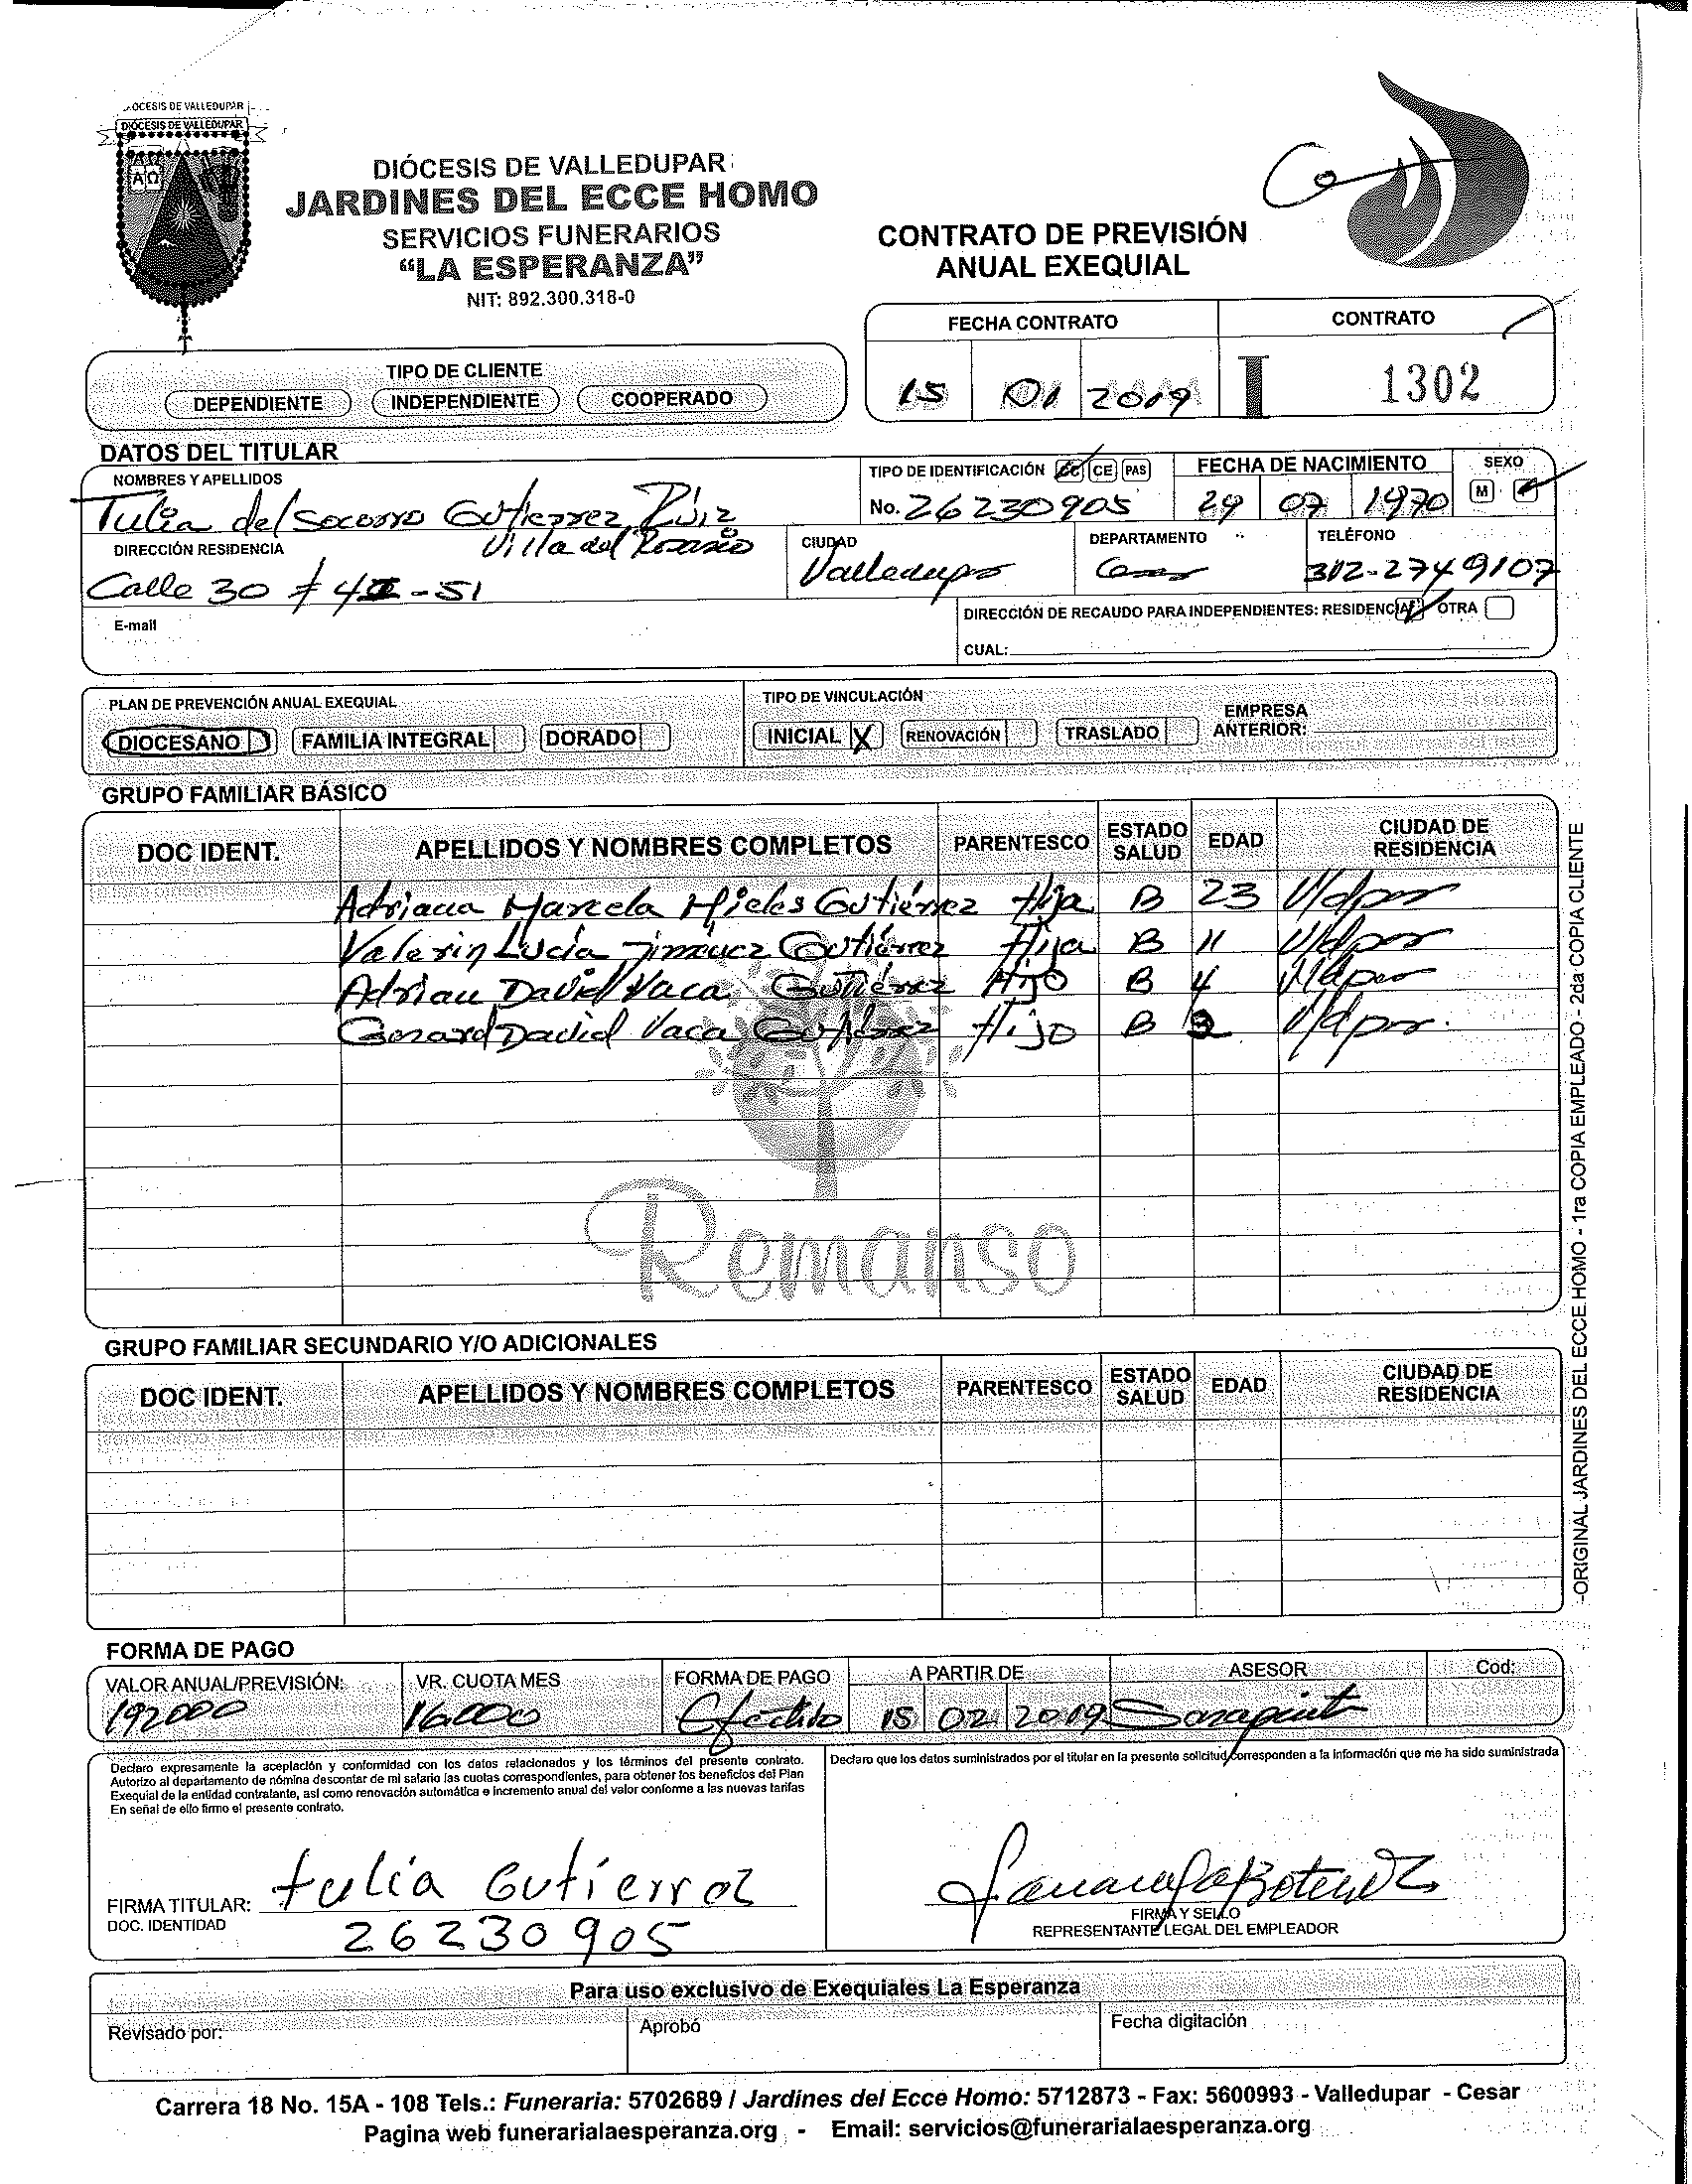 DIÓCESIS DE VALLEDUPAR
DIÓCESIS DE VALLEDUPAR
DIÓCESIS DE VALLEDUPAR
JARDINES DEL ECCE HOMO
SERVICIOS FUNERARIOS
“LA ESPERANZA”
NIT: 892.300.318-0
CONTRATO DE PREVISIÓN
ANUAL EXEQUIAL
FECHA CONTRATO CONTRATO
15 01 2019 I 1302
TIPO DE CLIENTE
DEPENDIENTE INDEPENDIENTE COOPERADO
DATOS DEL TITULAR
NOMBRES Y APELLIDOS TIPO DE IDENTIFICACIÓN CC CE PAS FECHA DE NACIMIENTO SEXO
Tulia del Socorro Gutierrez Ruiz No. 26230905 29 07 1970 M
DIRECCIÓN RESIDENCIA Villa del Rosario CIUDAD DEPARTAMENTO TELÉFONO
Calle 30 # 4 -51 Valledupar Cesar 312-2749107
E-mail DIRECCIÓN DE RECAUDO PARA INDEPENDIENTES: RESIDENCIA OTRA
CUAL:
PLAN DE PREVENCIÓN ANUAL EXEQUIAL TIPO DE VINCULACIÓN
DIOCESANO FAMILIA INTEGRAL DORADO INICIAL X RENOVACIÓN TRASLADO EMPRESA ANTERIOR:
GRUPO FAMILIAR BÁSICO
DOC IDENT. APELLIDOS Y NOMBRES COMPLETOS PARENTESCO ESTADO SALUD EDAD CIUDAD DE RESIDENCIA
Adriana Marcela Mieles Gutiérrez Hija B 23 V/dpar
Valerin Lucia Jimenez Gutiérrez Hija B 11 V/dpar
Adrian David Vaca Gutiérrez Hijo B 4 V/dpar
Gerard David Vaca Gutiérrez Hijo B V/dpar.
Remanso
GRUPO FAMILIAR SECUNDARIO Y/O ADICIONALES
DOC IDENT. APELLIDOS Y NOMBRES COMPLETOS PARENTESCO ESTADO SALUD EDAD CIUDAD DE RESIDENCIA
-ORIGINAL JARDINES DEL ECCE HOMO - 1ra COPIA EMPLEADO - 2da COPIA CLIENTE
FORMA DE PAGO
VALOR ANUAL/PREVISIÓN: VR. CUOTA MES FORMA DE PAGO A PARTIR DE ASESOR Cod:
192000 16.000 Efectivo 15 02 2019 Sarapinta
Declaro expresamente la aceptación y conformidad con los datos relacionados y los términos del presente contrato.
Autorizo al departamento de nómina descontar de mi salario las cuotas correspondientes, para obtener los beneficios del Plan
Exequial de la entidad contratante, así como renovación automática e incremento anual del valor conforme a las nuevas tarifas
En señal de ello firmo el presente contrato.
Declaro que los datos suministrados por el titular en la presente solicitud corresponden a la información que me ha sido suministrada
FIRMA TITULAR: tulia Gutierrez
DOC. IDENTIDAD 26230905
FIRMA Y SELLO
REPRESENTANTE LEGAL DEL EMPLEADOR
Para uso exclusivo de Exequiales La Esperanza
Revisado por: Aprobó Fecha digitación
Carrera 18 No. 15A - 108 Tels.: Funeraria: 5702689 / Jardines del Ecce Homo: 5712873 - Fax: 5600993 - Valledupar - Cesar
Pagina web funerarialaesperanza.org - Email: servicios@funerarialaesperanza.org